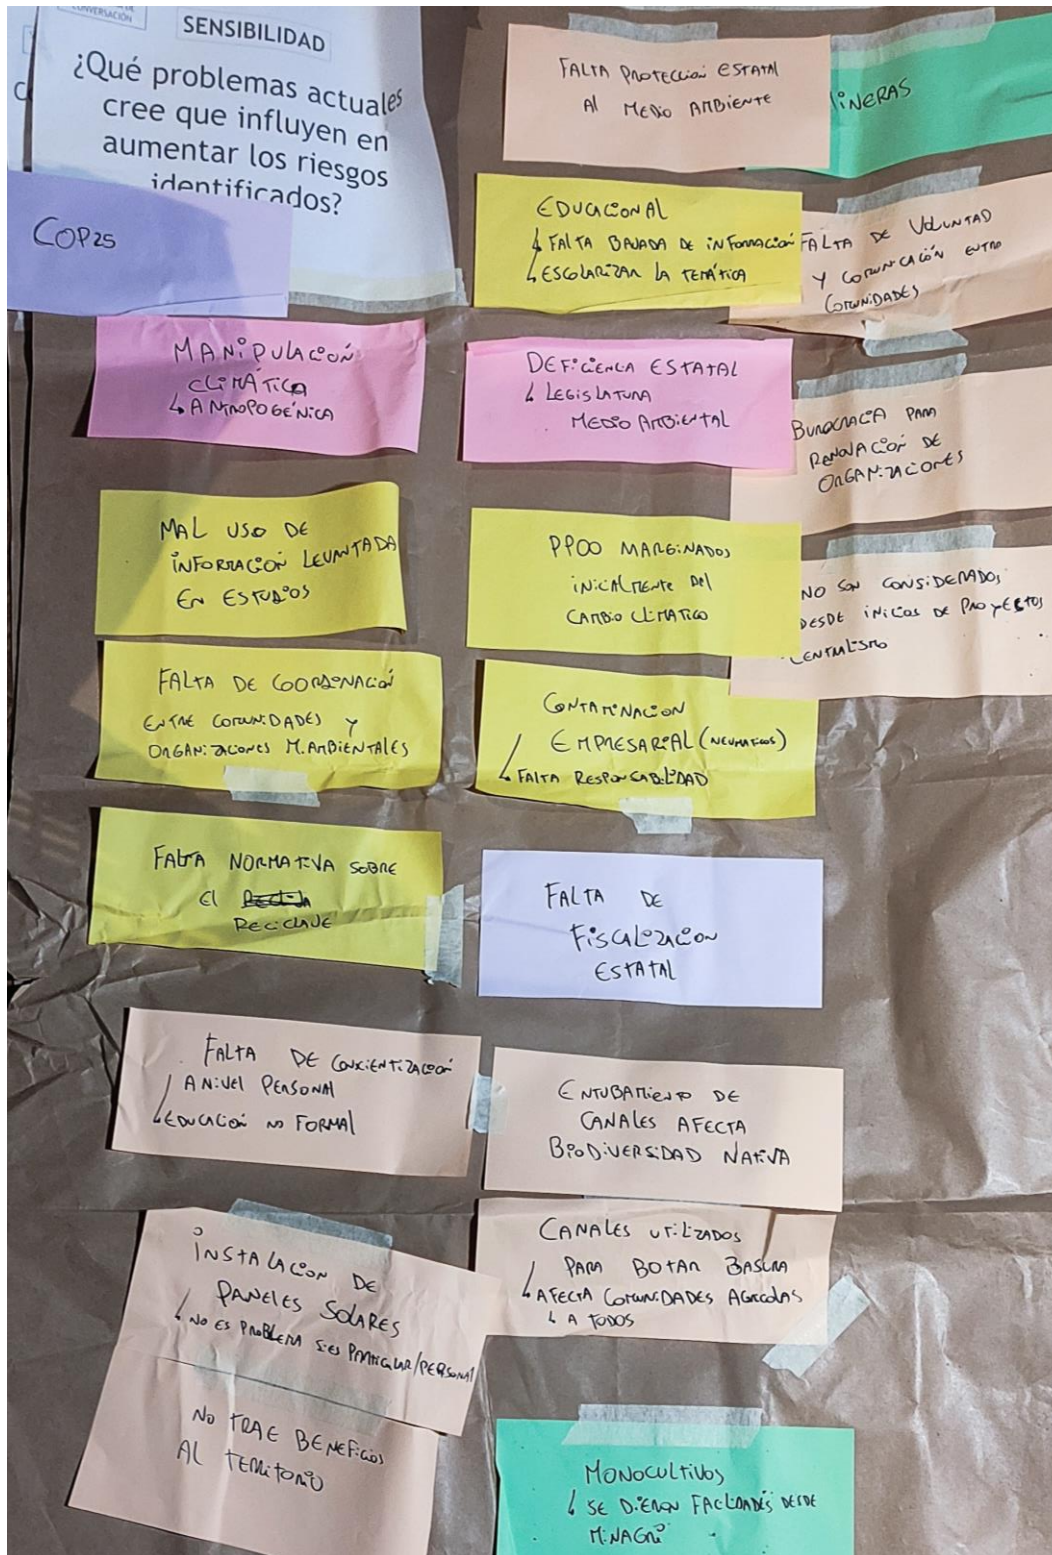 CONVERSACIÓN
SENSIBILIDAD
¿Qué problemas actuales
cree que influyen en
aumentar los riesgos
identificados?
COP25
MANIPULACIÓN
CLIMÁTICA
↳ ANTROPOGÉNICA
MAL USO DE
INFORMACIÓN LEVANTADA
EN ESTUDIOS
FALTA DE COORDINACIÓN
ENTRE COMUNIDADES Y
ORGANIZACIONES M.AMBIENTALES
FALTA NORMATIVA SOBRE
El
RECICLAJE
FALTA DE CONCIENTIZACIÓN
A NIVEL PERSONAL
↳ EDUCACIÓN NO FORMAL
INSTALACIÓN DE
PANELES SOLARES
↳ NO ES PROBLEMA SI ES PARTICULAR/PERSONAL
NO TRAE BENEFICIOS
AL TERRITORIO
FALTA PROTECCIÓN ESTATAL
Al MEDIO AMBIENTE
EDUCACIONAL
↳ FALTA BAJADA DE INFORMACIÓN
↳ ESCOLARIZAR LA TEMÁTICA
DEFICIENCIA ESTATAL
↳ LEGISLATURA
MEDIO AMBIENTAL
PPOO MARGINADOS
INICIALMENTE DEL
CAMBIO CLIMATICO
CONTAMINACION
EMPRESARIAL (NEUMATICOS)
↳ FALTA RESPONSABILIDAD
FALTA DE
FISCALIZACION
ESTATAL
ENTUBAMIENTO DE
CANALES AFECTA
BIODIVERSIDAD NATIVA
CANALES UTILIZADOS
PARA BOTAR BASURA
↳ AFECTA COMUNIDADES AGRICOLAS
↳ A TODOS
MONOCULTIVOS
↳ SE DIERON FACILIDADES DESDE
MINAGRI
MINERAS
FALTA DE VOLUNTAD
Y COMUNICACIÓN ENTRE
COMUNIDADES
BUROCRACIA PARA
RENOVACIÓN DE
ORGANIZACIONES
NO SON CONSIDERADOS
DESDE INICIOS DE PROYECTOS
CENTRALISMO